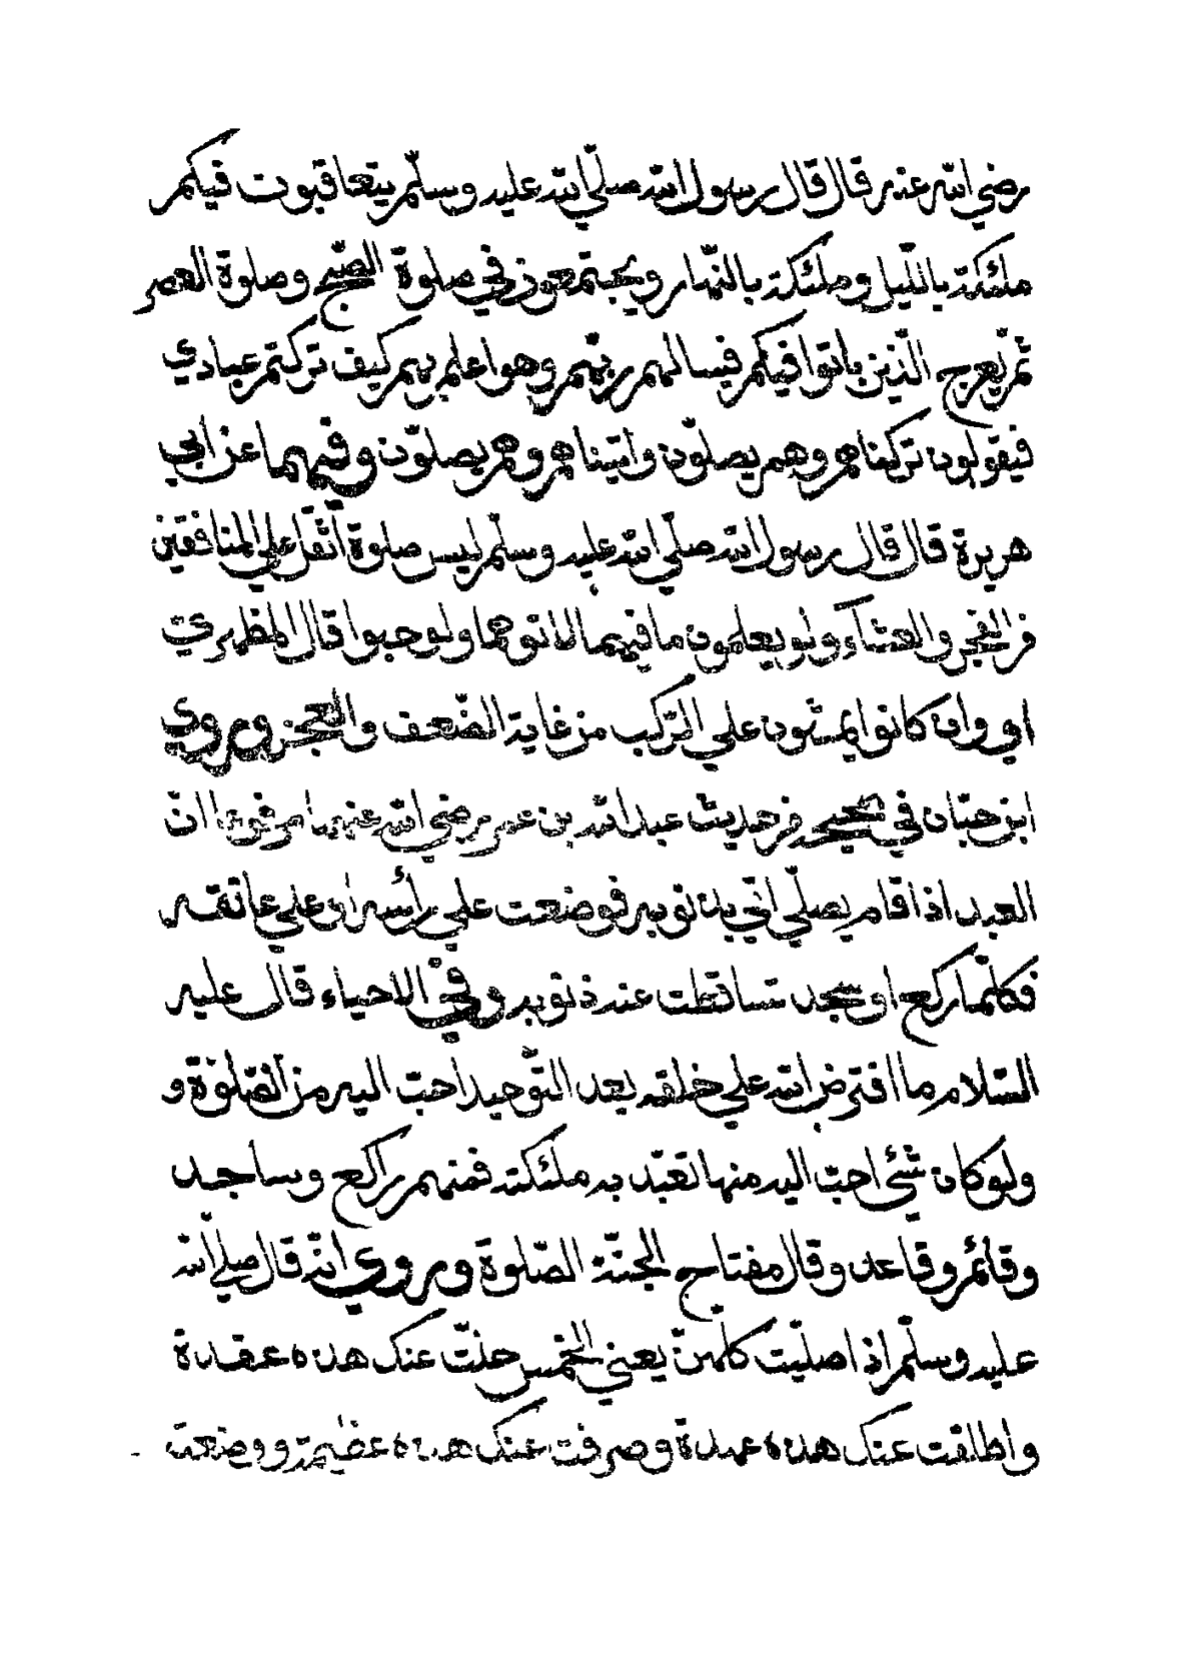 رضي الله عنه قال قال رسول الله صلّي الله عليه وسلّم يتعاقبون فيكم
ملئكة بالليل وملئكة بالنّهار ويجتمعون في صلوة الصّبح وصلوة العصر
ثم يعرج الّذين باتوا فيكم فيسالهم ربّهم وهو اعلم بهم كيف تركتم عبادي
فيقولون تركناهم وهم يصلّون واتيناهم وهم يصلّون وفيهما عن ابي
هريرة قال قال رسول الله صلّي الله عليه وسلّم ليس صلوة اثقل علي المنافقين
من الفجر والعشآء ولو يعلمون ما فيهما لاتوهما ولو حبوا قال المظهري
اي وان كانوا يمشون علي الرّكب من غاية الضّعف والعجز وروي
ابن حبّان في صحيحه من حديث عبد الله بن عمر رضي الله عنهما مرفوعا انّ
العبد اذا قام يصلّي اتي بذنوبه فوضعت علي رأسه او علي عاتقه
فكلّما ركع او سجد تساقطت عنه ذنوبه وفي الاحياء قال عليه
السّلام ما افترض الله علي خلقه بعد التّوحيد احبّ اليه من الصّلوة و
ولو كان شئ احبّ اليه منها تعبّد به ملئكته فمنهم راكع وساجد
وقائم وقاعد وقال مفتاح الجنّة الصّلوة وروي انّه قال صلي الله
عليه وسلّم اذا صلّيت كلّهنّ يعني الخمس حلّت عنك هذه عقدة
واطلقت عنك هذه عهدة وصرفت عنك هذه عظيمة ووضعت